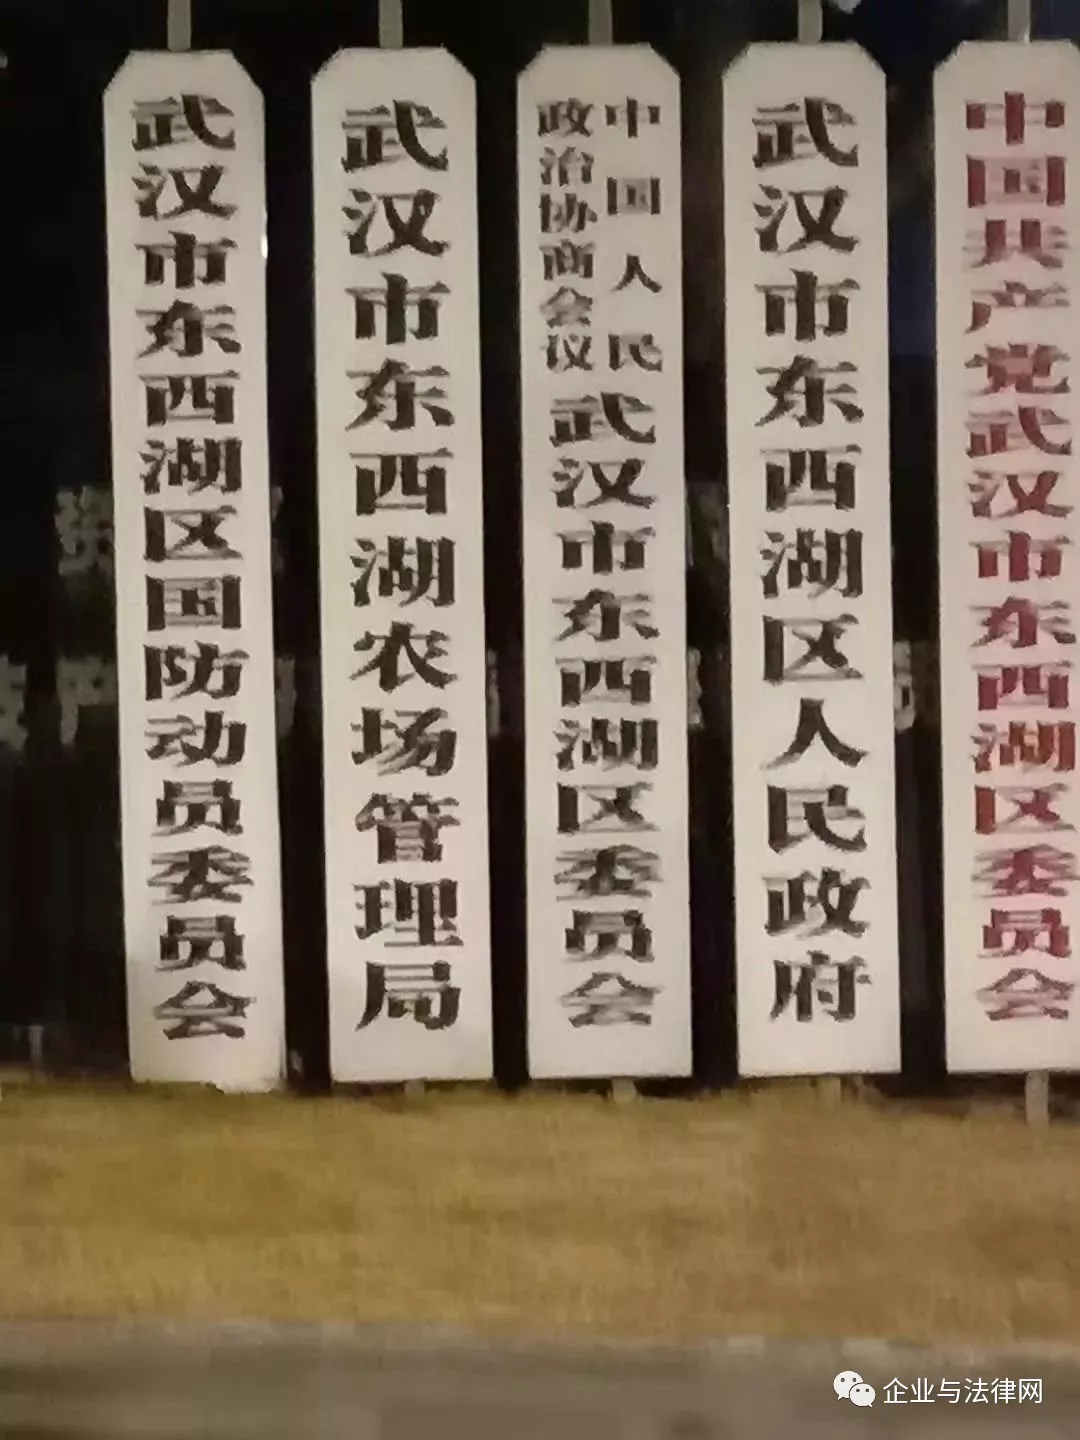 武汉市东西湖区国防动员委员会
武汉市东西湖农场管理局
中国人民
政治协商会议
武汉市东西湖区委员会
武汉市东西湖区人民政府
中国共产党武汉市东西湖区委员会
企业与法律网